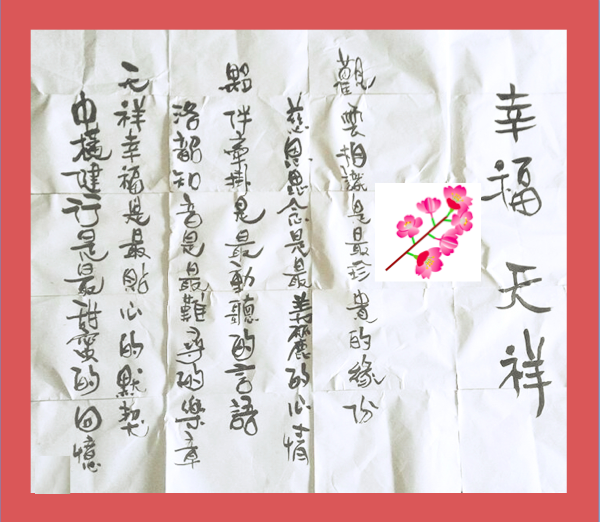 幸福 天祥
觀雲相識是最珍貴的緣份
慈恩思念是最美麗的心情
夥伴牽掛是最動聽的言語
洛韶知音是最難尋的樂章
天祥幸福是最貼心的默契
中橫健行是最甜蜜的回憶